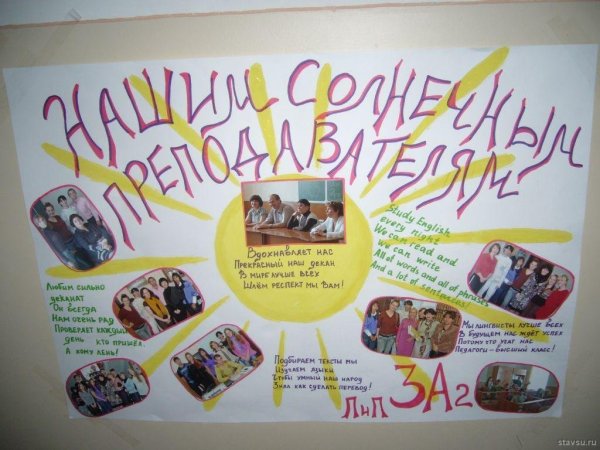 НАШИМ СОЛНЕЧНЫМ
ПРЕПОДАВАТЕЛЯМ
Вдохнавляет нас
Прекрасный наш декан
В мире лучше всех
Шлём респект мы Вам!
Study English
every night
We can read and
We can write
All of words and all of phrases
And a lot of sentencies
Любим сильно
деканат
Он всегда
Нам очень рад
Проверяет каждый
день кто пришёл.
А кому лень!
Мы лингвисты лучше всех
В будущем нас ждёт успех
Потому что учат нас
Педагоги - высший класс!
Подбираем тексты мы
Изучаем языки
Чтобы умный наш народ
Знал как сделать перевод!
ЛиП 3А2
stavsu.ru